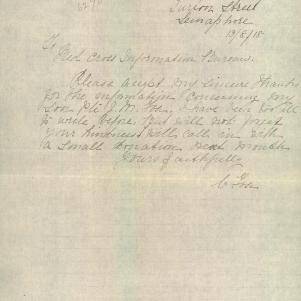 Street
19/5/18
To
Red Cross Information Bureau.
Please accept my sincere thanks
for the information concerning my
Son Pte J. W. I have been too ill
to write before but will not forget
your kindness will call in with
a small donation next month
Yours faithfully
C